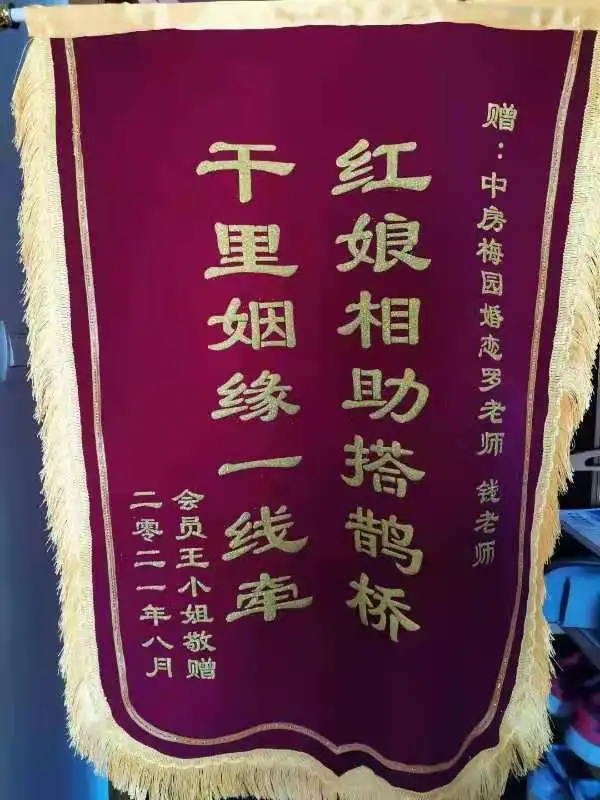 赠：中房梅园婚恋罗老师 钱老师
红娘相助搭鹊桥
千里姻缘一线牵
会员王小姐敬赠
二零二一年八月